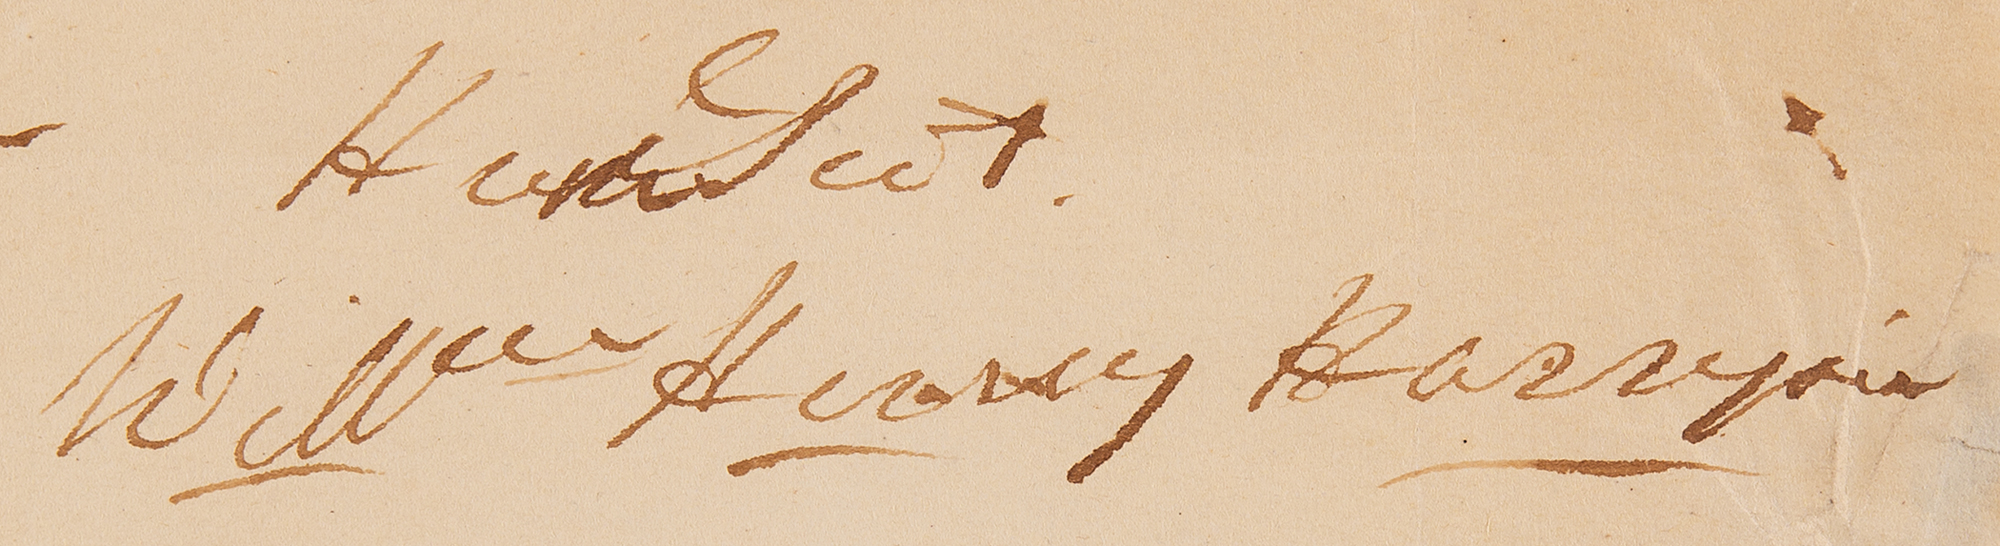 Hum Svt.
Willm Henry Harrison